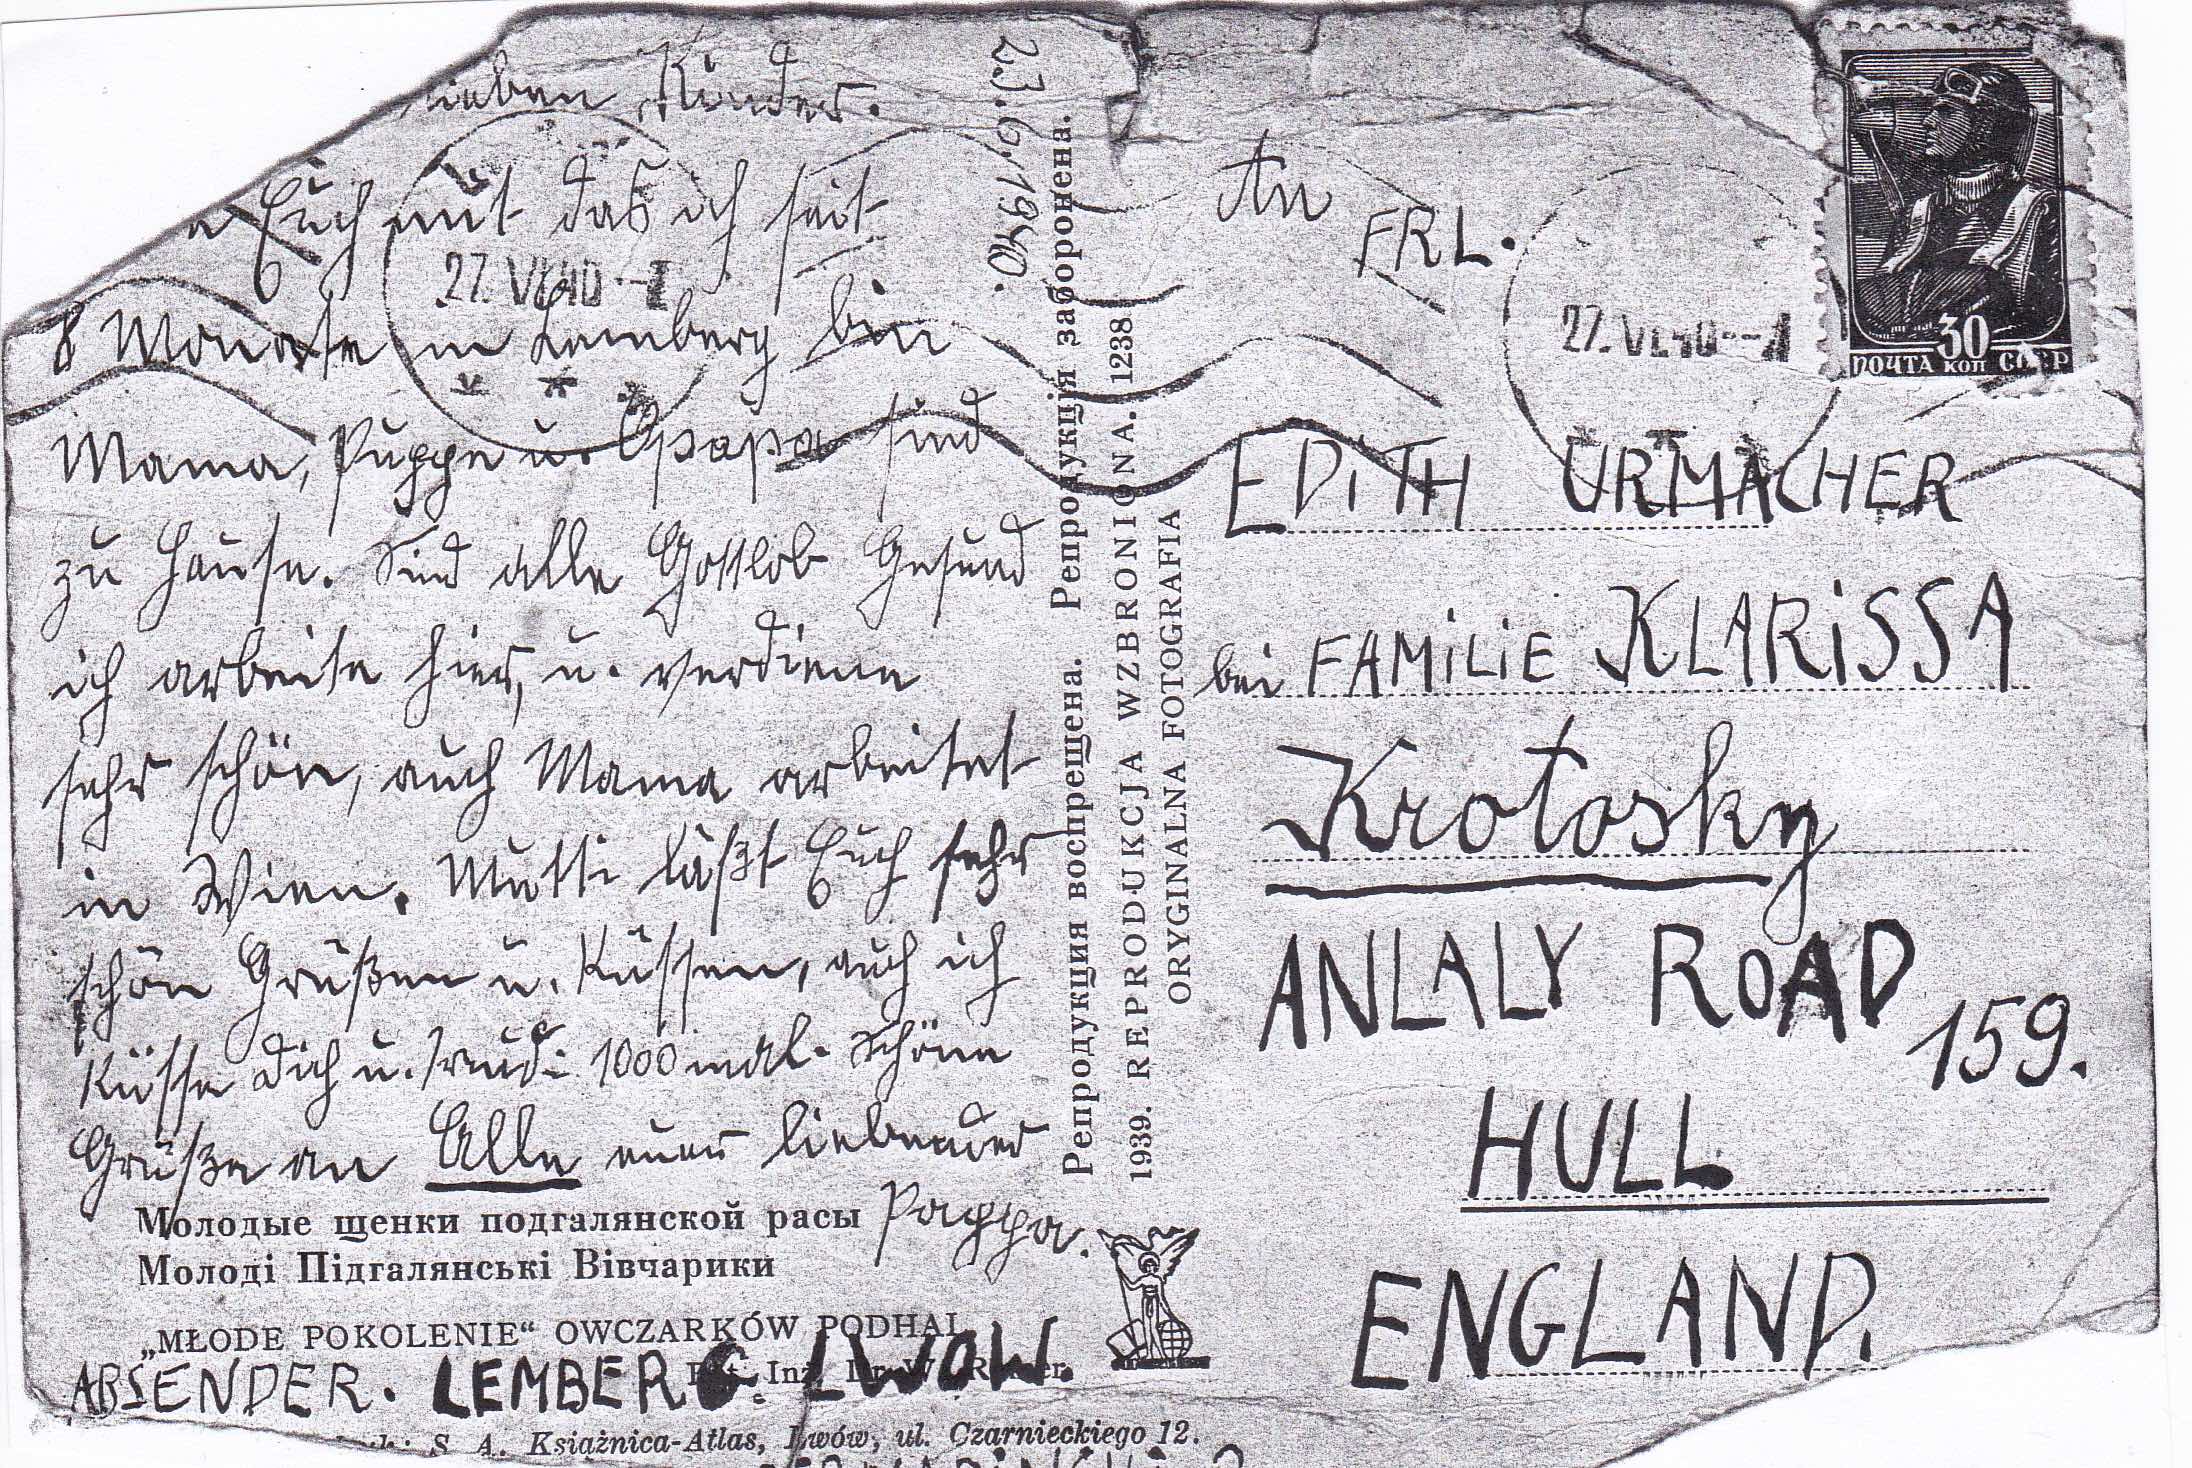 lieben Kinder.
23.6.1940.
Euch mit das ich seit
8 Monate in Lemberg bin
Mama, Puppe u. Opapa sind
zu Hause. Sind alle Gottlob Gesund
ich arbeite hier, u. verdiene
sehr schön, auch Mama arbeitet
in Wien. Mutti läßt Euch sehr
schön Grüßen u. Küssen, auch ich
Küsse Dich u. Trudi 1000 mal. Schöne
Grüße an Alle euer liebender
Pappa.
Молодые щенки подгалянской расы
Молоді Підгалянські Вівчарики
„MŁODE POKOLENIE“ OWCZARKÓW PODHAL.
Inż. Dr. W.
ABSENDER. LEMBERG LWOW.
S. A. Książnica-Atlas, Lwów, ul. Czarnieckiego 12.
Репродукция воспрещена. Репродукція заборонена.
1939. REPRODUKCJA WZBRONIONA. 1238
ORYGINALNA FOTOGRAFIA
27. VI 40
27. VI 40
30
ПОЧТА КОП СССР
An
FRL.
EDITH URMACHER
bei FAMILIE KLARISSA
Krotosky
ANLALY ROAD
159.
HULL
ENGLAND.